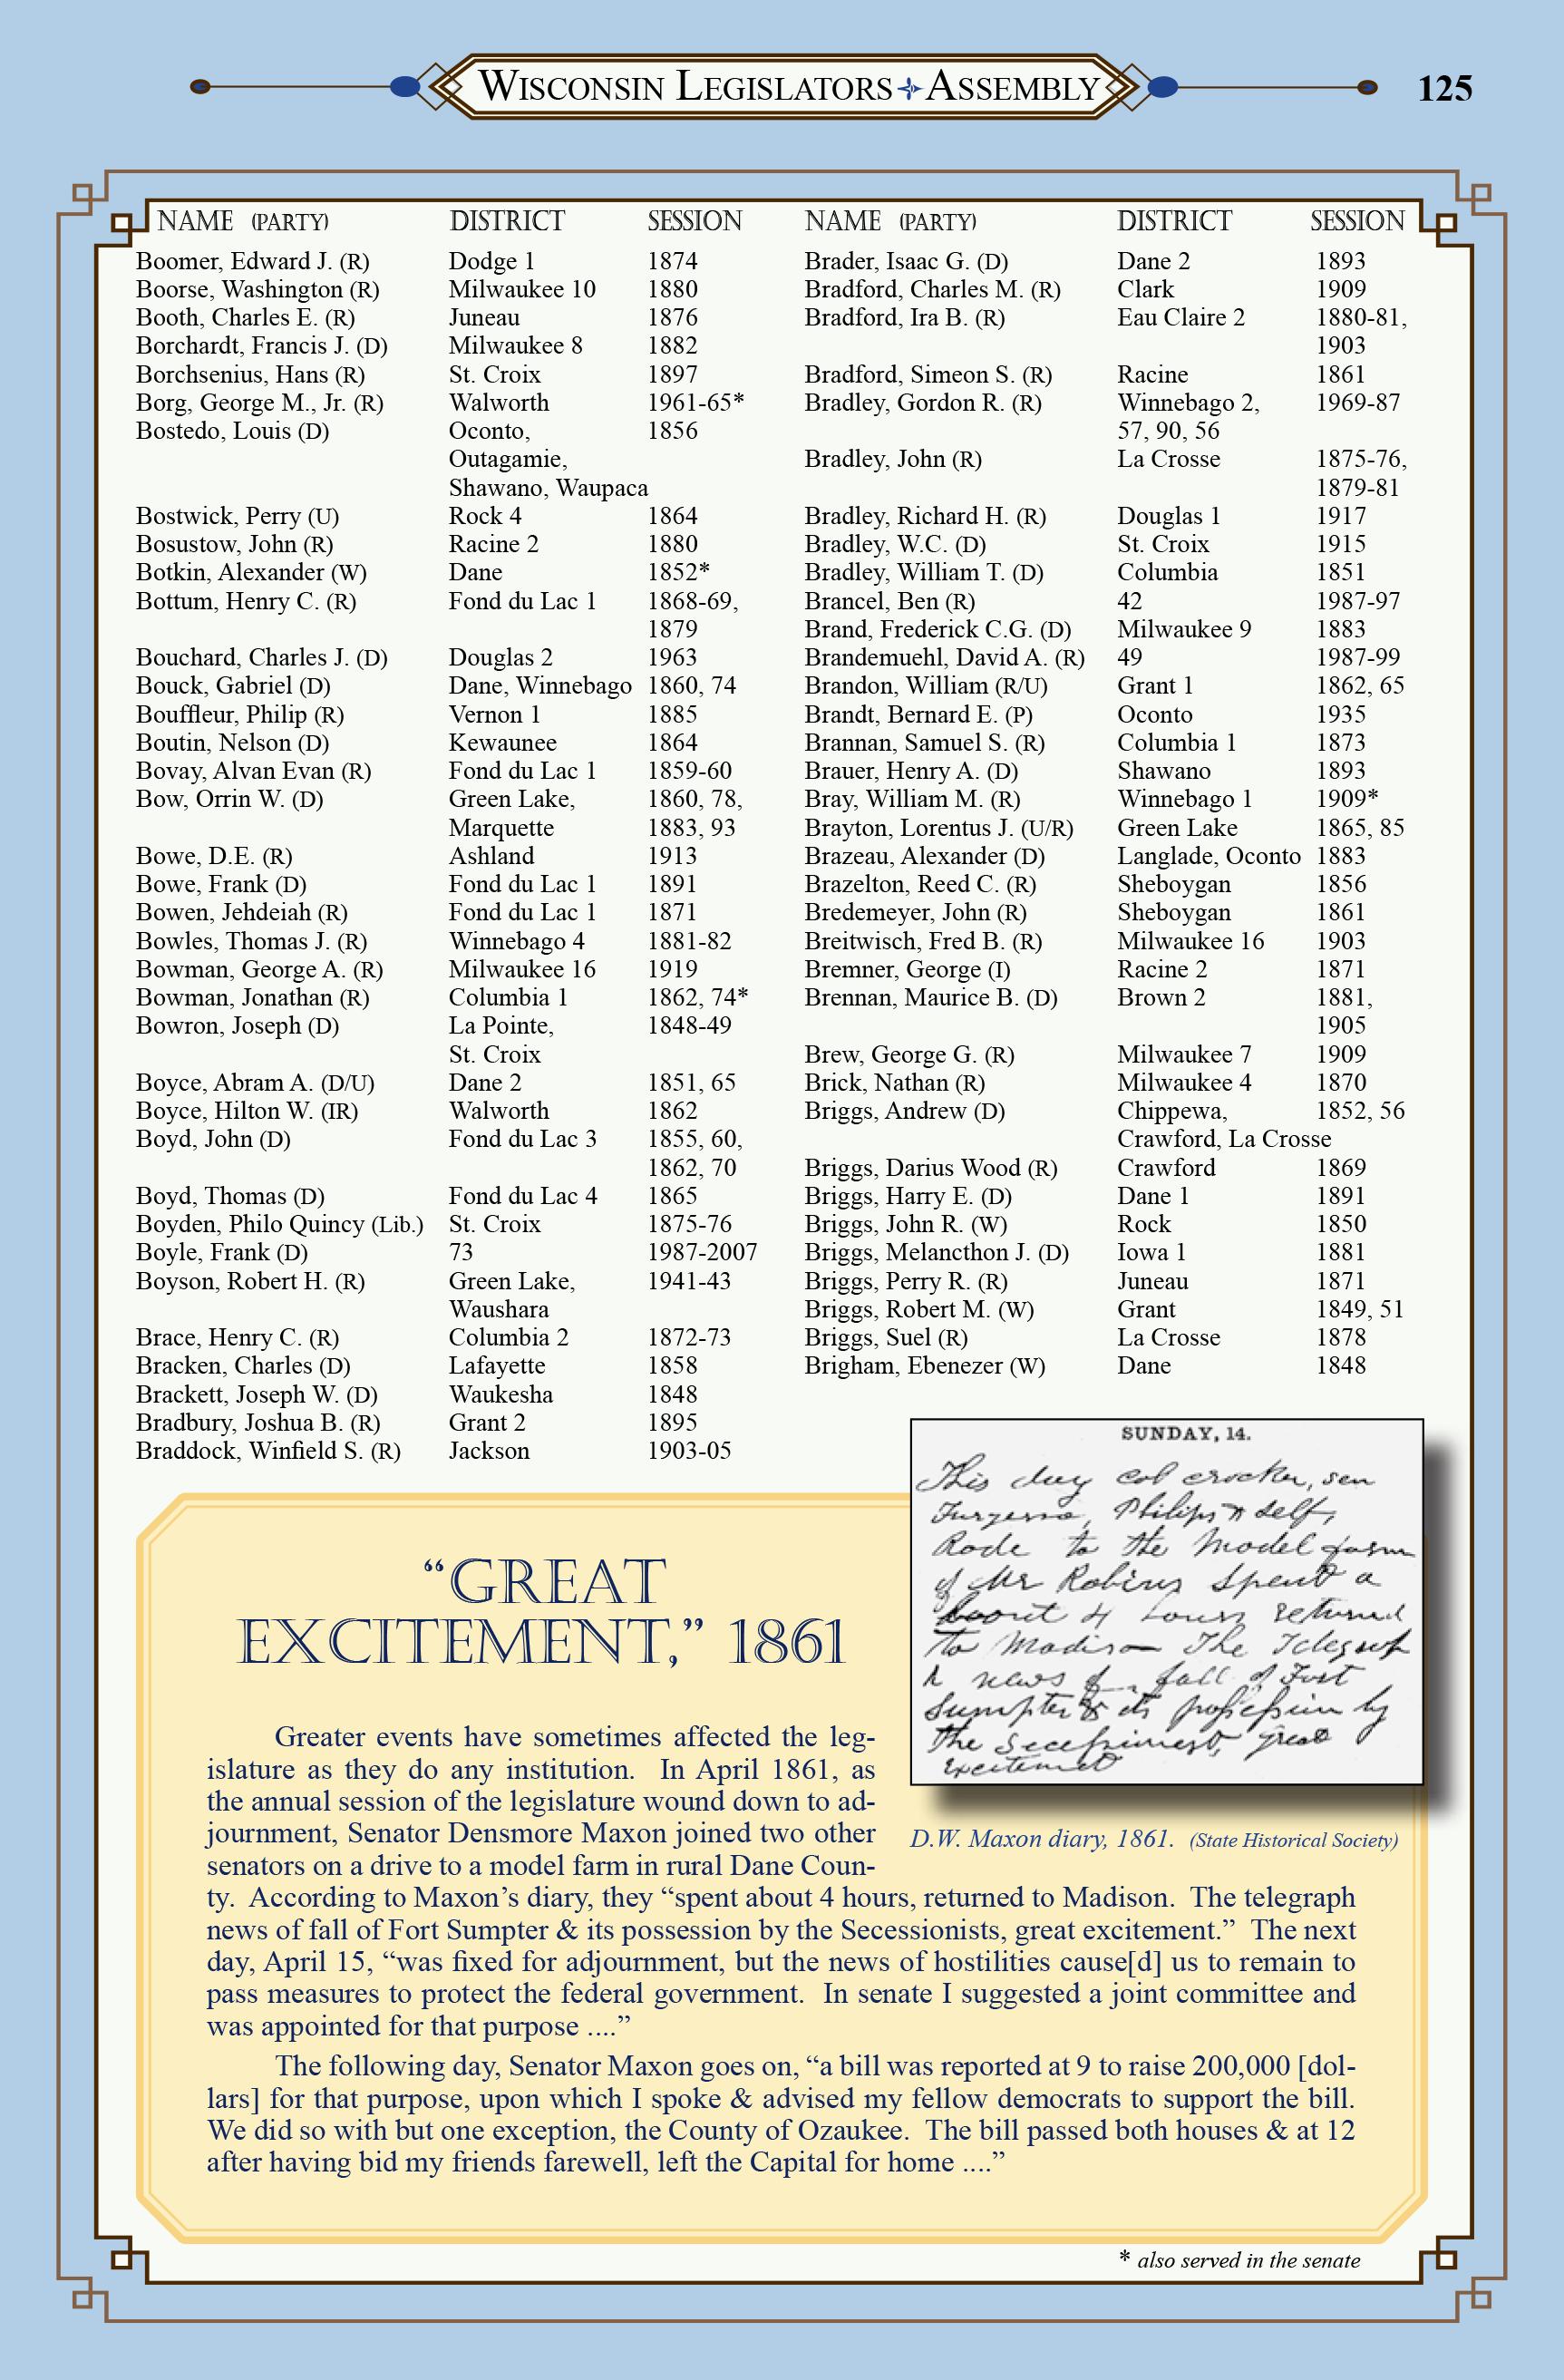 WISCONSIN LEGISLATORS ASSEMBLY 125
NAME (PARTY) DISTRICT SESSION
Boomer, Edward J. (R) Dodge 1 1874
Boorse, Washington (R) Milwaukee 10 1880
Booth, Charles E. (R) Juneau 1876
Borchardt, Francis J. (D) Milwaukee 8 1882
Borchsenius, Hans (R) St. Croix 1897
Borg, George M., Jr. (R) Walworth 1961-65*
Bostedo, Louis (D) Oconto, 1856
Outagamie,
Shawano, Waupaca
Bostwick, Perry (U) Rock 4 1864
Bosustow, John (R) Racine 2 1880
Botkin, Alexander (W) Dane 1852*
Bottum, Henry C. (R) Fond du Lac 1 1868-69,
1879
Bouchard, Charles J. (D) Douglas 2 1963
Bouck, Gabriel (D) Dane, Winnebago 1860, 74
Bouffleur, Philip (R) Vernon 1 1885
Boutin, Nelson (D) Kewaunee 1864
Bovay, Alvan Evan (R) Fond du Lac 1 1859-60
Bow, Orrin W. (D) Green Lake, 1860, 78,
Marquette 1883, 93
Bowe, D.E. (R) Ashland 1913
Bowe, Frank (D) Fond du Lac 1 1891
Bowen, Jehdeiah (R) Fond du Lac 1 1871
Bowles, Thomas J. (R) Winnebago 4 1881-82
Bowman, George A. (R) Milwaukee 16 1919
Bowman, Jonathan (R) Columbia 1 1862, 74*
Bowron, Joseph (D) La Pointe, 1848-49
St. Croix
Boyce, Abram A. (D/U) Dane 2 1851, 65
Boyce, Hilton W. (IR) Walworth 1862
Boyd, John (D) Fond du Lac 3 1855, 60,
1862, 70
Boyd, Thomas (D) Fond du Lac 4 1865
Boyden, Philo Quincy (Lib.) St. Croix 1875-76
Boyle, Frank (D) 73 1987-2007
Boyson, Robert H. (R) Green Lake, 1941-43
Waushara
Brace, Henry C. (R) Columbia 2 1872-73
Bracken, Charles (D) Lafayette 1858
Brackett, Joseph W. (D) Waukesha 1848
Bradbury, Joshua B. (R) Grant 2 1895
Braddock, Winfield S. (R) Jackson 1903-05
NAME (PARTY) DISTRICT SESSION
Brader, Isaac G. (D) Dane 2 1893
Bradford, Charles M. (R) Clark 1909
Bradford, Ira B. (R) Eau Claire 2 1880-81,
1903
Bradford, Simeon S. (R) Racine 1861
Bradley, Gordon R. (R) Winnebago 2, 1969-87
57, 90, 56
Bradley, John (R) La Crosse 1875-76,
1879-81
Bradley, Richard H. (R) Douglas 1 1917
Bradley, W.C. (D) St. Croix 1915
Bradley, William T. (D) Columbia 1851
Brancel, Ben (R) 42 1987-97
Brand, Frederick C.G. (D) Milwaukee 9 1883
Brandemuehl, David A. (R) 49 1987-99
Brandon, William (R/U) Grant 1 1862, 65
Brandt, Bernard E. (P) Oconto 1935
Brannan, Samuel S. (R) Columbia 1 1873
Brauer, Henry A. (D) Shawano 1893
Bray, William M. (R) Winnebago 1 1909*
Brayton, Lorentus J. (U/R) Green Lake 1865, 85
Brazeau, Alexander (D) Langlade, Oconto 1883
Brazelton, Reed C. (R) Sheboygan 1856
Bredemeyer, John (R) Sheboygan 1861
Breitwisch, Fred B. (R) Milwaukee 16 1903
Bremner, George (I) Racine 2 1871
Brennan, Maurice B. (D) Brown 2 1881,
1905
Brew, George G. (R) Milwaukee 7 1909
Brick, Nathan (R) Milwaukee 4 1870
Briggs, Andrew (D) Chippewa, 1852, 56
Crawford, La Crosse
Briggs, Darius Wood (R) Crawford 1869
Briggs, Harry E. (D) Dane 1 1891
Briggs, John R. (W) Rock 1850
Briggs, Melancthon J. (D) Iowa 1 1881
Briggs, Perry R. (R) Juneau 1871
Briggs, Robert M. (W) Grant 1849, 51
Briggs, Suel (R) La Crosse 1878
Brigham, Ebenezer (W) Dane 1848
SUNDAY, 14.
This day Col crocker, sen
Philips & Self,
Rode to the Model farm
of Mr Robins Spent a
boout 4 hours returned
to Madison The Telegrap
h news of fall of Fort
Sumpter & its possession by
the Secessionest, great
excitement
D.W. Maxon diary, 1861. (State Historical Society)
“GREAT
EXCITEMENT,” 1861
Greater events have sometimes affected the leg-
islature as they do any institution. In April 1861, as
the annual session of the legislature wound down to ad-
journment, Senator Densmore Maxon joined two other
senators on a drive to a model farm in rural Dane Coun-
ty. According to Maxon’s diary, they “spent about 4 hours, returned to Madison. The telegraph
news of fall of Fort Sumpter & its possession by the Secessionists, great excitement.” The next
day, April 15, “was fixed for adjournment, but the news of hostilities cause[d] us to remain to
pass measures to protect the federal government. In senate I suggested a joint committee and
was appointed for that purpose ....”
The following day, Senator Maxon goes on, “a bill was reported at 9 to raise 200,000 [dol-
lars] for that purpose, upon which I spoke & advised my fellow democrats to support the bill.
We did so with but one exception, the County of Ozaukee. The bill passed both houses & at 12
after having bid my friends farewell, left the Capital for home ....”
* also served in the senate